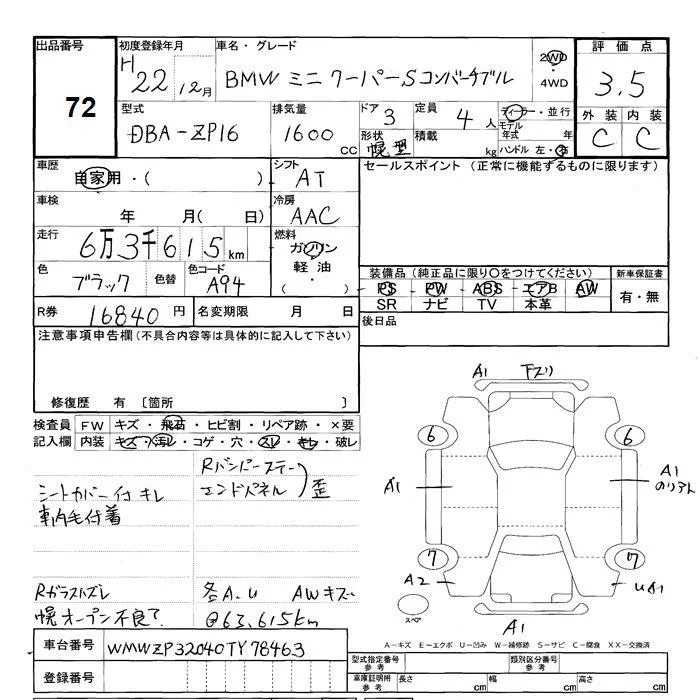 出品番号 72
初度登録年月 H22年12月
車名・グレード BMW ミニ クーパーS コンバーチブル
2WD・4WD
評価点 3.5
外装 C 内装 C
型式 DBA-ZP16
排気量 1600 CC
ドア 3
形状 幌型
定員 4人
積載 kg
ディーラー・並行
モデル年式 年
ハンドル 左・右
車歴 自家用・( )
シフト AT
セールスポイント (正常に機能するものに限ります)
車検 年 月( 日)
冷房 AAC
走行 6万3千615km
燃料 ガソリン 軽油・( )
色 ブラック 色替
色コード A94
装備品(純正品に限り○をつけてください)
PS PW ABS エアB AW
SR ナビ TV 本革
新車保証書 有・無
R券 16840円
名変期限 月 日
後日品
注意事項申告欄(不具合内容等は具体的に記入して下さい)
修復歴 有 〔箇所 〕
検査員記入欄
FW キズ・飛石・ヒビ割・リペア跡・×要
内装 キズ・汚レ・コゲ・穴・スレ・キレ・破レ
Rバンパーステー
エンドパネル 歪
シートカバー付 キレ
車内毛付着
Rガラスハズレ 各A.U AWキズ
幌オープン不良て @63,615km
A1 下ズリ
6 6
A1 A1
7 7
A2 UA1
スペア
A1
A-キズ E-エクボ U-凹み W-補修跡 S-サビ C-腐食 XX-交換済
車台番号 WMWZP32040TY78463
登録番号
型式指定番号 参考
類別区分番号 参考
車庫証明用 参考 長さ cm 幅 cm 高さ cm